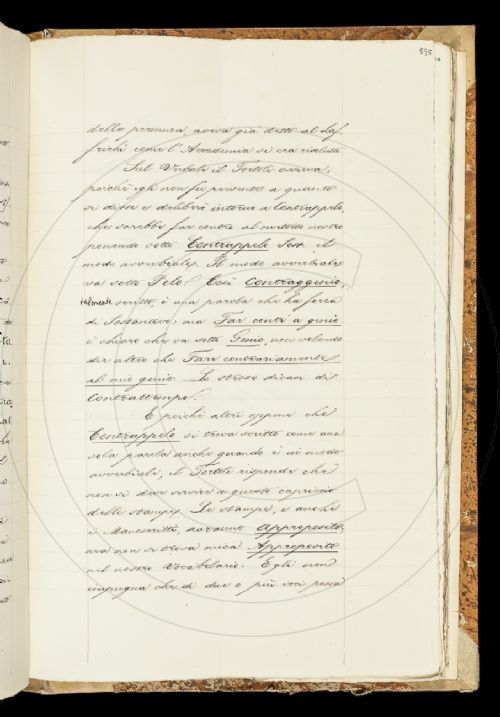 595
della premura, aveva già detto al Laf,
frichi come l'Accademia si era risoluta
Sul Verbale il Tortoli osserva,
poichè egli non fu presente a quanto
si disse e deliberò intorno a Contrappelo,
che sarebbe far contro al metodo nostro
ponendo sotto Contrappelo Sost. il
modo avverbiale. Il modo avverbiale
va sotto Pelo! Così Contraggenio,
talmente scritto, è una parola che ha forza
di Sostantivo: ma Far contr'a genio
è chiaro che va sotto Genio, non volendo
dir altro che Fare contrariamente
al mio genio. Lo stesso dicasi di
Contrattempo.
E poichè altri oppone che
Contrappelo si trova scritto come una
sola parola anche quando è in modo
avverbiale, il Tortoli risponde che
non si deve servire a queste capricci
delle stampe. Le stampe, e anche
i Manoscritti, avranno Approposito,
ma non si trova mica Approposito
nel nostro Vocabolario. Egli non
impugna che di due o più voci possa